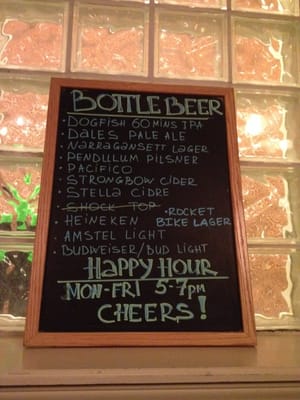 BOTTLE BEER
· DOGFISH 60 MINS IPA
· DALES PALE ALE
· NARRAGANSETT LAGER
· PENDULUM PILSNER
· PACIFICO
· STRONGBOW CIDER
· STELLA CIDRE
· SHOCK TOP
· ROCKET BIKE LAGER
· HEINEKEN
· AMSTEL LIGHT
· BUDWEISER/BUD LIGHT
HAPPY HOUR
MON-FRI 5-7PM
CHEERS!